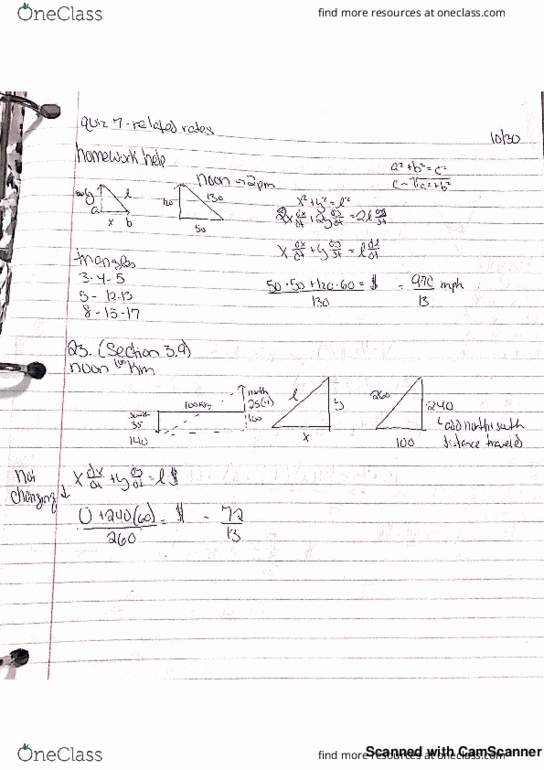 OneClass
find more resources at oneclass.com
quiz 7 - related rates
10/30
homework help
a² + b² = c²
noon → 2pm
x² + y² = l²
130
50
x b
x dx/dt + y dy/dt = l dl/dt
triangles
3-4-5
5-12-13
8-15-17
50·50 + 120·60 =
130
970
13
mph
23. (Section 3.9)
noon 100 km
100km
north
south
35
140
l
y
x
260
240
100
add north & south
distance traveled
not
changing ↓
x dx/dt + y dy/dt = l
0 + 240(60) =
260
72
13
OneClass
find more resources at oneclass.com
Scanned with CamScanner